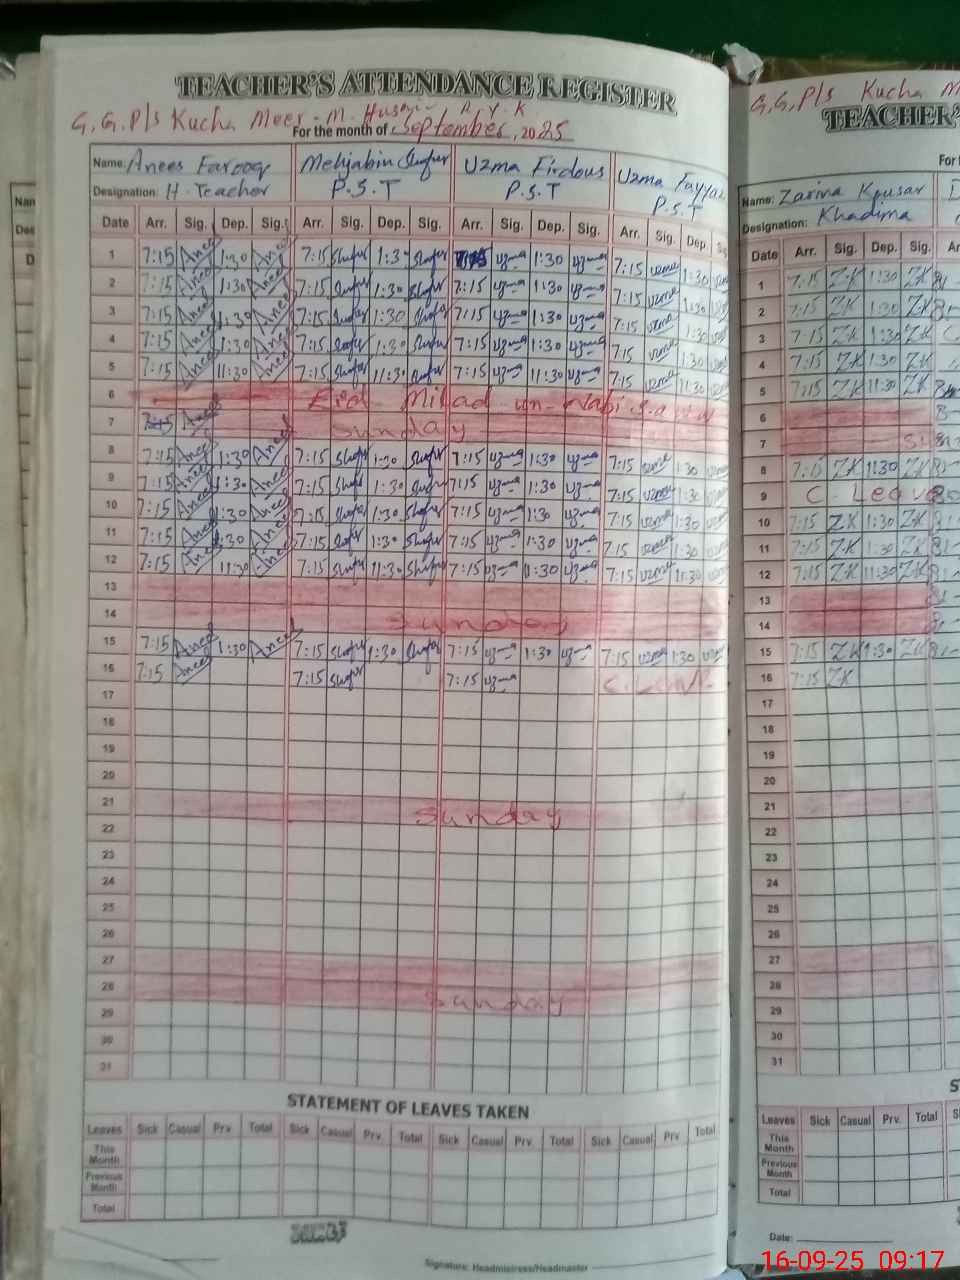 TEACHER'S ATTENDANCE REGISTER
G.G.P/s Kucha Meer-M. Husain R.Y.K
For the month of September, 2025
Name: Anees Farooq Mehjabin Shafur Uzma Firdous Uzma Fayyaz
Designation: H-Teacher P.S.T P.S.T P.S.T
Date Arr. Sig. Dep. Sig. Arr. Sig. Dep. Sig. Arr. Sig. Dep. Sig. Arr. Sig. Dep. Sig
1 7:15 Anees 1:30 Anees 7:15 Shafur 1:30 Shafur 7:15 uzma 1:30 uzma 7:15 uzma 1:30 uzma
2 7:15 Anees 1:30 Anees 7:15 Shafur 1:30 Shafur 7:15 uzma 1:30 uzma 7:15 uzma 1:30 uzma
3 7:15 Anees 1:30 Anees 7:15 Shafur 1:30 Shafur 7:15 uzma 1:30 uzma 7:15 uzma 1:30 uzma
4 7:15 Anees 1:30 Anees 7:15 Shafur 1:30 Shafur 7:15 uzma 1:30 uzma 7:15 uzma 1:30 uzma
5 7:15 Anees 11:30 Anees 7:15 Shafur 11:30 Shafur 7:15 uzma 11:30 uzma 7:15 uzma 11:30 uzma
6 Eid Milad un-Nabi S.A.W.W
7 7:15 Anees Sunday
8 7:15 Anees 1:30 Anees 7:15 Shafur 1:30 Shafur 7:15 uzma 1:30 uzma 7:15 uzma 1:30 uzma
9 7:15 Anees 1:30 Anees 7:15 Shafur 1:30 Shafur 7:15 uzma 1:30 uzma 7:15 uzma 1:30 uzma
10 7:15 Anees 1:30 Anees 7:15 Shafur 1:30 Shafur 7:15 uzma 1:30 uzma 7:15 uzma 1:30 uzma
11 7:15 Anees 1:30 Anees 7:15 Shafur 1:30 Shafur 7:15 uzma 1:30 uzma 7:15 uzma 1:30 uzma
12 7:15 Anees 11:30 Anees 7:15 Shafur 11:30 Shafur 7:15 uzma 11:30 uzma 7:15 uzma 11:30 uzma
13
14 Sunday
15 7:15 Anees 1:30 Anees 7:15 Shafur 1:30 Shafur 7:15 uzma 1:30 uzma 7:15 uzma 1:30 uzma
16 7:15 Anees 7:15 Shafur 7:15 uzma C. Leave
17
18
19
20
21 Sunday
22
23
24
25
26
27
28 Sunday
29
30
31
STATEMENT OF LEAVES TAKEN
Leaves Sick Casual Prv. Total Sick Casual Prv. Total Sick Casual Prv. Total Sick Casual Prv. Total
This Month
Previous Month
Total
Signature: Headmistress/Headmaster
G.G.P/s Kucha M
TEACHER'S
For
Name: Zarina Kousar
Designation: Khadima
Date Arr. Sig. Dep. Sig.
1 7:15 ZK 1:30 ZK
2 7:15 ZK 1:30 ZK
3 7:15 ZK 1:30 ZK
4 7:15 ZK 1:30 ZK
5 7:15 ZK 11:30 ZK
6
7
8 7:15 ZK 1:30 ZK
9 C. Leave
10 7:15 ZK 1:30 ZK
11 7:15 ZK 1:30 ZK
12 7:15 ZK 11:30 ZK
13
14
15 7:15 ZK 1:30 ZK
16 7:15 ZK
17
18
19
20
21
22
23
24
25
26
27
28
29
30
31
Leaves Sick Casual Prv. Total
This Month
Previous Month
Total
Date:
16-09-25 09:17